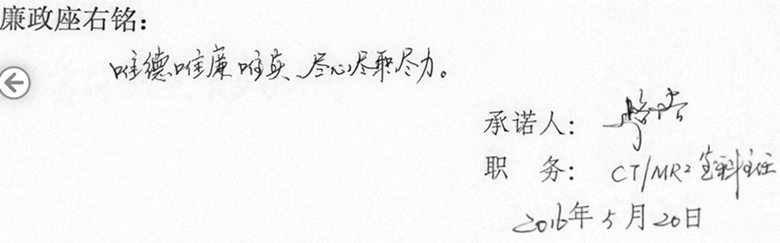 廉政座右铭：
唯德唯廉唯实、尽心尽职尽力。
承诺人：
职 务：CT/MR室科主任
2016年5月20日